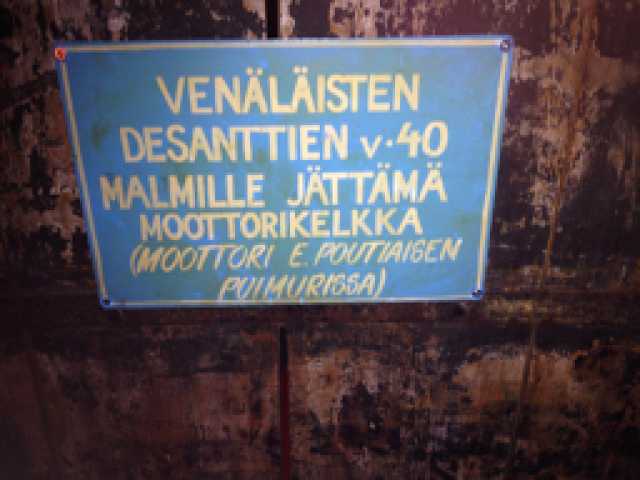 VENÄLÄISTEN
DESANTTIEN v.40
MALMILLE JÄTTÄMÄ
MOOTTORIKELKKA
(MOOTTORI E. POUTIAISEN
PUIMURISSA)